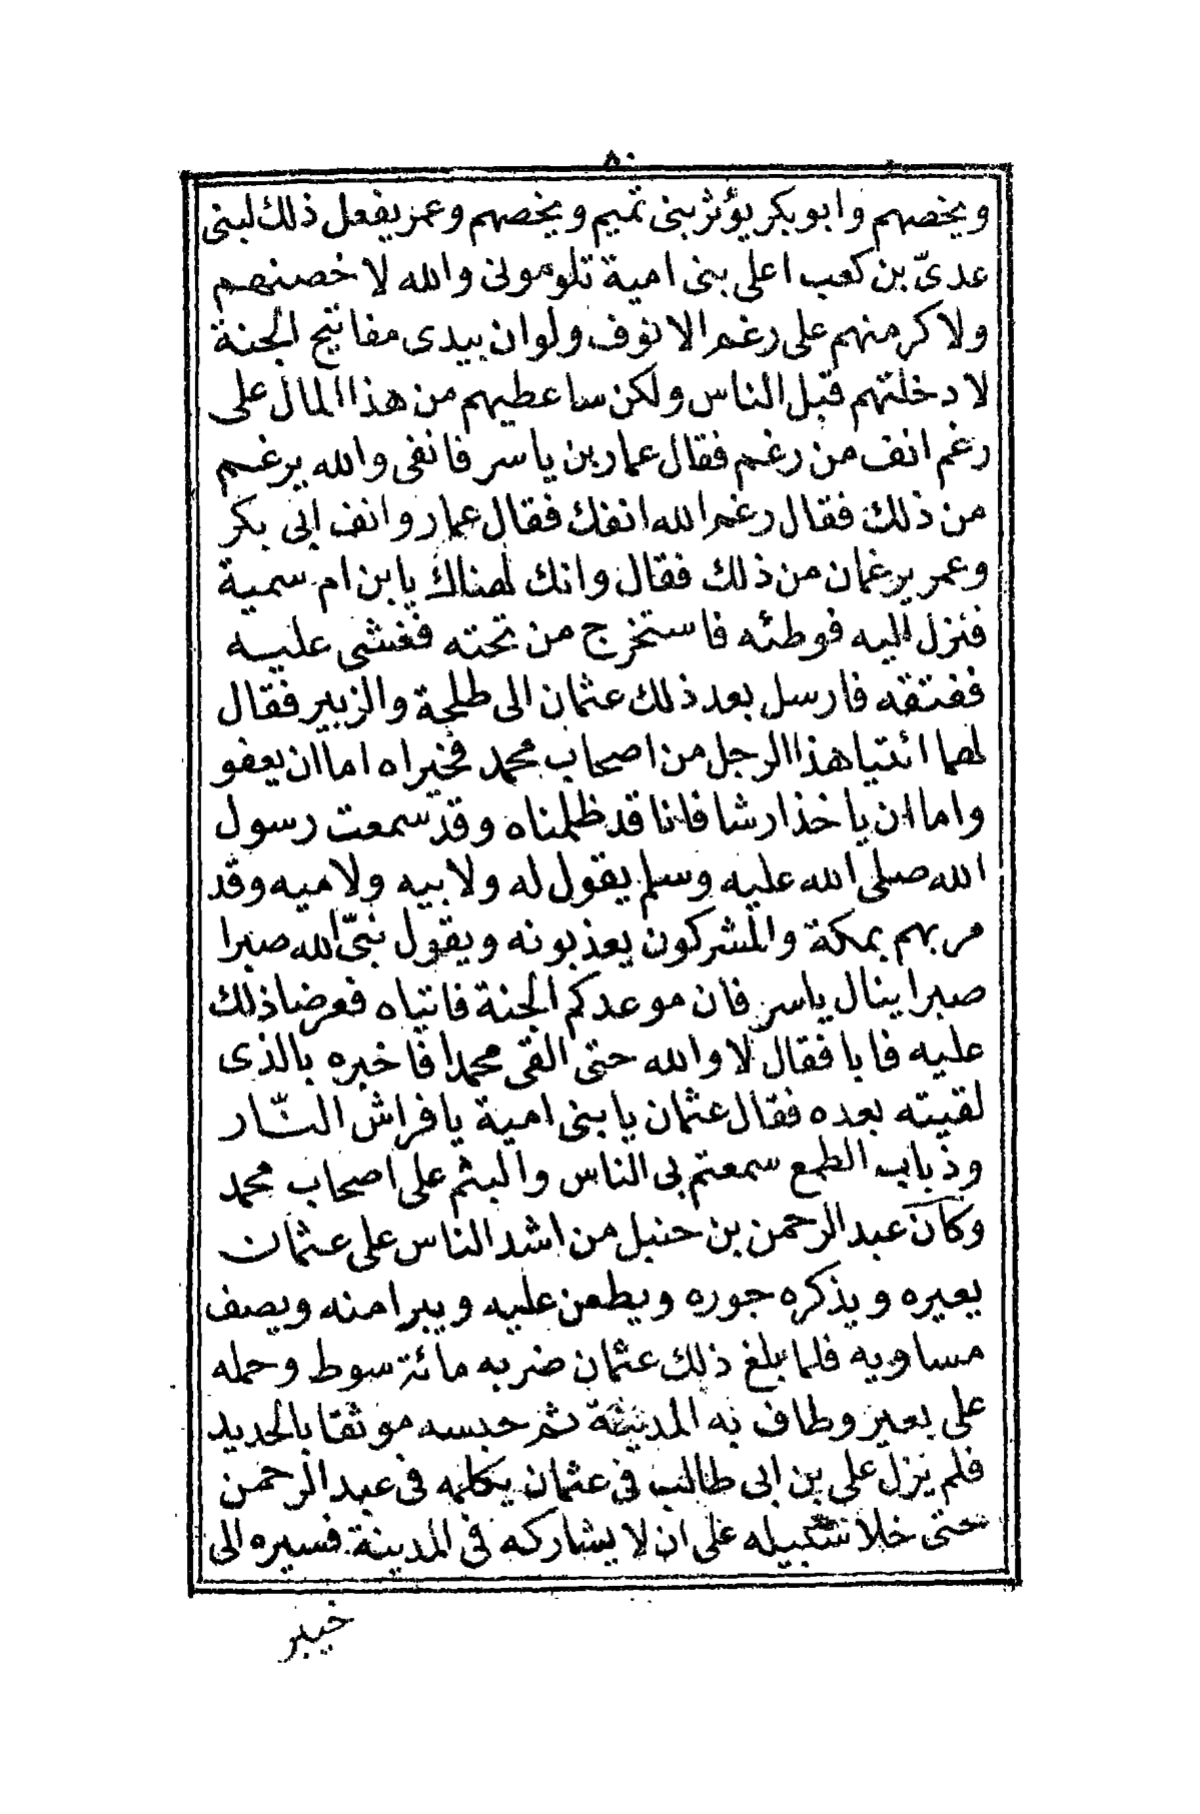 ٥٠
ويخصهم وابوبكر يؤثر بنى تميم ويخصهم وعمر يفعل ذلك لبنى
عدىّ بن كعب اعلى بنى امية تلومونى والله لا خصنهم
ولا كرمنهم على رغم الانوف ولو ان بيدى مفاتيح الجنة
لا دخلتهم قبل الناس ولكن ساعطيهم من هذا المال على
رغم انف من رغم فقال عمار بن ياسر فانفى والله يرغم
من ذلك فقال رغم الله انفك فقال عمار وانف ابى بكر
وعمر يرغمان من ذلك فقال وانك لهناك يابن ام سمية
فنزل اليه فوطئه فاستخرج من تحته فغشى عليه
ففتقه فارسل بعد ذلك عثمان الى طلحة والزبير فقال
لهما ائتيا هذا الرجل من اصحاب محمد فخيراه اما ان يعفو
واما ان ياخذ ارشا فاننا قد ظلمناه وقد سمعت رسول
الله صلى الله عليه وسلم يقول له ولابيه ولاميه وقد
مر بهم بمكة والمشركون يعذبونه ويقول نبىّ الله صبرا
صبرا ينال ياسر فان موعدكم الجنة فاتياه فعرضا ذلك
عليه فابا فقال لا والله حتى القى محمدا فاخبره بالذى
لقيته بعده فقال عثمان يا بنى امية يا فراش النّار
وذباب الطمع سمعتم بى الناس والبثم على اصحاب محمد
وكان عبد الرحمن بن حنبل من اشد الناس على عثمان
يعيره ويذكره جوره ويطعن عليه ويبرا منه ويصف
مساويه فلما بلغ ذلك عثمان ضربه مائة سوط وحمله
على بعير وطاف به المدينة ثم حبسه موثقا بالحديد
فلم يزل على بن ابى طالب فى عثمان يكلمه فى عبد الرحمن
حتى خلا سبيله على ان لا يشاركه فى المدينة فسيره الى
خيبر